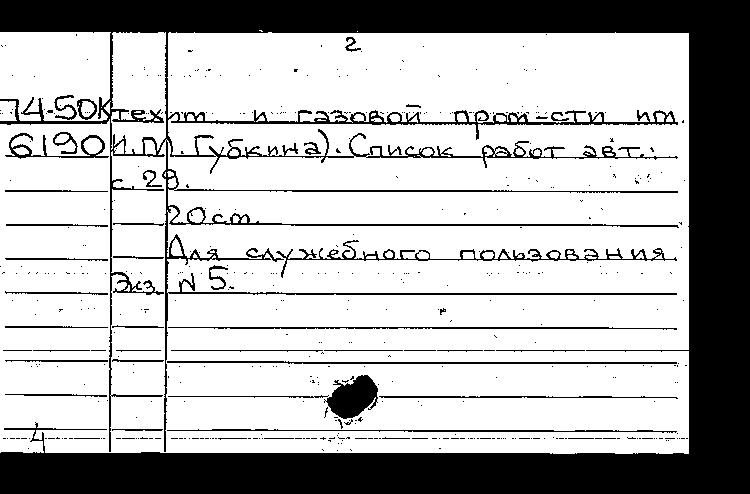 2
74-50К техим и газовой пром-сти им.
6190 И.М. Губкина). Список работ авт.:
с. 29.
20 см.
Для служебного пользования
Экз. N 5.
4